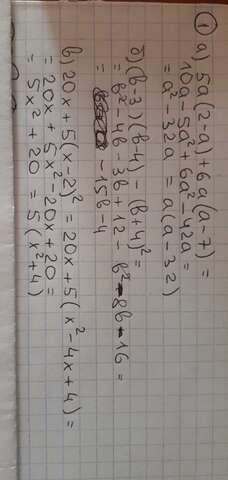 ①
а) 5a(2-a)+6a(a-7)=
10a-5a²+6a²-42a=
=a²-32a = a(a-32)
б) (b-3)(b-4)-(b+4)²=
=b²-4b-3b+12-b²-8b-16 =
= -15b-4
в) 20x+5(x-2)²=20x+5(x²-4x+4)=
=20x+5x²-20x+20=
=5x²+20 = 5(x²+4)